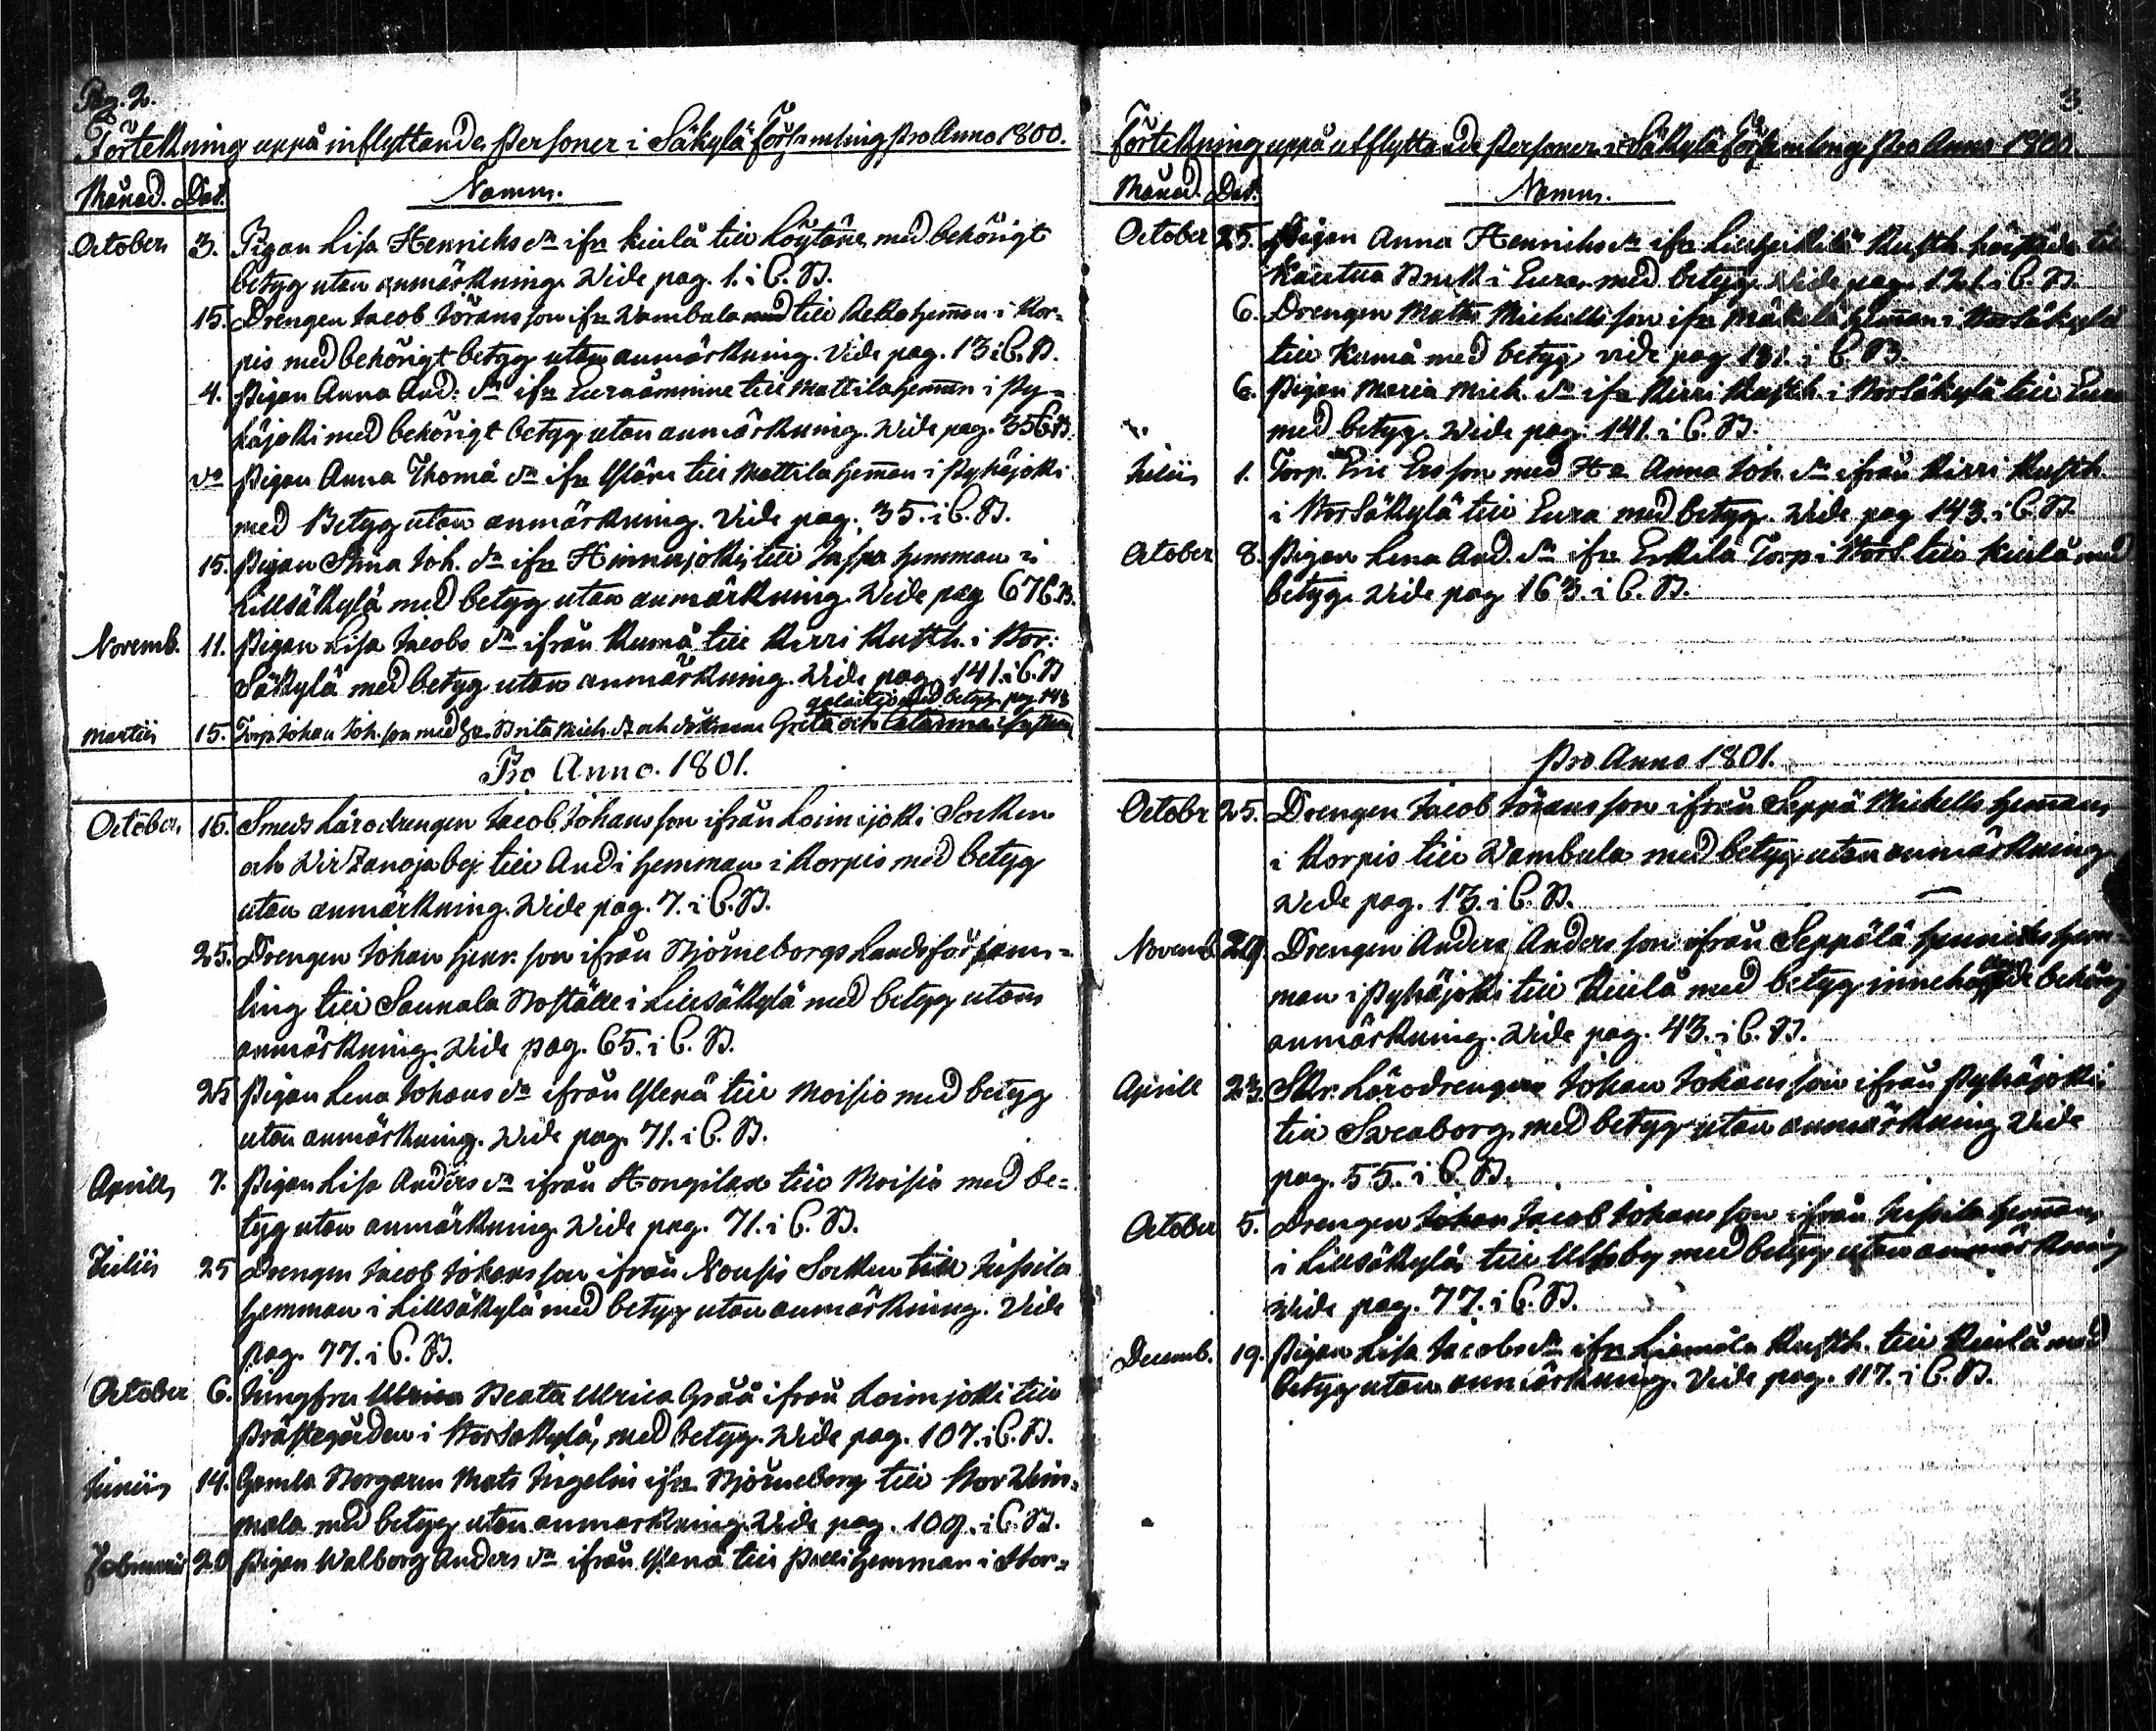 Pag. 2.
Förtekning uppå inflyttande Personer i Säkylä Församling Pro Anno 1800.
Månad. Dat. Namn.
October 3. Pigan Lisa Henrichs dr ifn Kiulå till Löytäne med behörigt
betyg utan anmärkning. Wide pag. 1. i C. B.
15. Drengen Jacob Göransson ifn Wambula till hemman i Kor-
pis med behörigt betyg utan anmärkning. Vide pag. 13 i C. B.
4. Pigan Anna And: dr ifn Euraåminne till Mattila hemman i Py-
häjoki med behörigt betyg utan anmärkning. Wide pag. 35 C. B.
do Pigan Anna Thomä dr ifn Yläne till Mattila hemman i Pyhäjoki
med Betyg utan anmärkning. Vide pag. 35. i C. B.
15. Pigan Anna Joh. dr ifn Hinnerjoki till hemman i
Lillsäkylä med betyg utan anmärkning. Wide pag 67 C. B.
Novemb. 11. Pigan Lisa Jacobs dr ifrån Kumå till Kirri Rusth. i Stor:
Säkylä med betyg utan anmärkning. Wide pag. 141. i C. B
med betyg. pag. 143
Martii 15. Torp. Johan Joh. son med Brita Mich. dr och döttrarne Greta och Catarina
Pro Anno. 1801.
October 15. Smeds Lärodrengen Jacob Johansson ifrån Loimijoki Socken
och Wirtzanoja by till Andi hemman i Korpis med betyg
utan anmärkning. Wide pag. 7. i C. B.
25. Drengen Johan Henr. son ifrån Björneborgs Landsförsam-
ling till Saunala Boställe i Lillsäkylä med betyg utom
anmärkning. Wide pag. 65. i C. B.
25 Pigan Lena Johans dr ifrån Ylenä till Moisio med betyg
utan anmärkning. Wide pag. 71. i C. B.
Aprill 7. Pigan Lisa Anders dr ifrån Hongilax till Moisio med be-
tyg utan anmärkning. Wide pag. 71. i C. B.
Julii 25 Drengen Jacob Johansson ifrån Nousis Socken till Jussila
hemman i Lillsäkylä med betyg utan anmärkning. Vide
pag. 77. i C. B.
October 6. Jungfru Beata Ulrica Gråå ifrån Loimjoki till
Prästegården i Storsäkylä, med betyg. Wide pag. 107. i C. B.
Junii 14. Gamla Borgaren Mats Ingelin ifn Björneborg till Stor Wim-
mala med betyg utan anmärkning. Wide pag. 109. i C. B.
Februarii 20 Pigan Walborg Anders dr ifrån Ylenä till Pelli hemman i Stor-
3
Förtekning uppå utflyttande Personer i Säkylä Församling Pro Anno 1800.
Månad. Dat. Namn.
October 25. Pigan Anna Henrichs dr ifn Rusth. till
Kautua Bruk i Eura med betyg. Wide pag. 121 i C. B.
6. Drengen Matts Michellsson ifn Mäkelä hemman i Storsäkylä
till Kumå med betyg vide pag 131. i C. B.
6. Pigan Maria Mich. dr ifn Kirri Rusth. i Storsäkylä till Eura
med betyg. Wide pag. 141. i C. B.
Julii 1. Torp. Eric Ersson med H. Anna Joh. dr ifrån Kirri Rusth.
i Storsäkylä till Eura med betyg. Wide pag 143. i C. B.
October 8. Pigan Lena And. dr ifn Erkilä Torp i StorS. till Kiulå med
betyg. Wide pag 163. i C. B.
Pro Anno 1801.
Octobr 25. Drengen Jacob Göransson ifrån Seppä Michells hemman
i Korpis till Wambula med betyg utan anmärkning
Wide pag. 13. i C. B.
Novemb. 29. Drengen Anders Andersson ifrån Seppälä Henrichs hem-
man i Pyhäjoki till Kiulå med betyg innehållande behörig
anmärkning. Wide pag. 43. i C. B.
Aprill 23. Skr. Lärodrengen Johan Johansson ifrån Pyhäjoki
till Sveaborg, med betyg utan anmärkning Wide
pag. 55. i C. B.
October 5. Drengen Jacob Johansson ifrån Jussila hemman
i Lillsäkylä till Ulfsby med betyg utan anmärkning
Wide pag. 77. i C. B.
Decemb. 19. Pigan Lisa Jacobs dr ifn Liemola Rusth. till Kiulå med
betyg utan anmärkning. Vide pag. 117. i C. B.